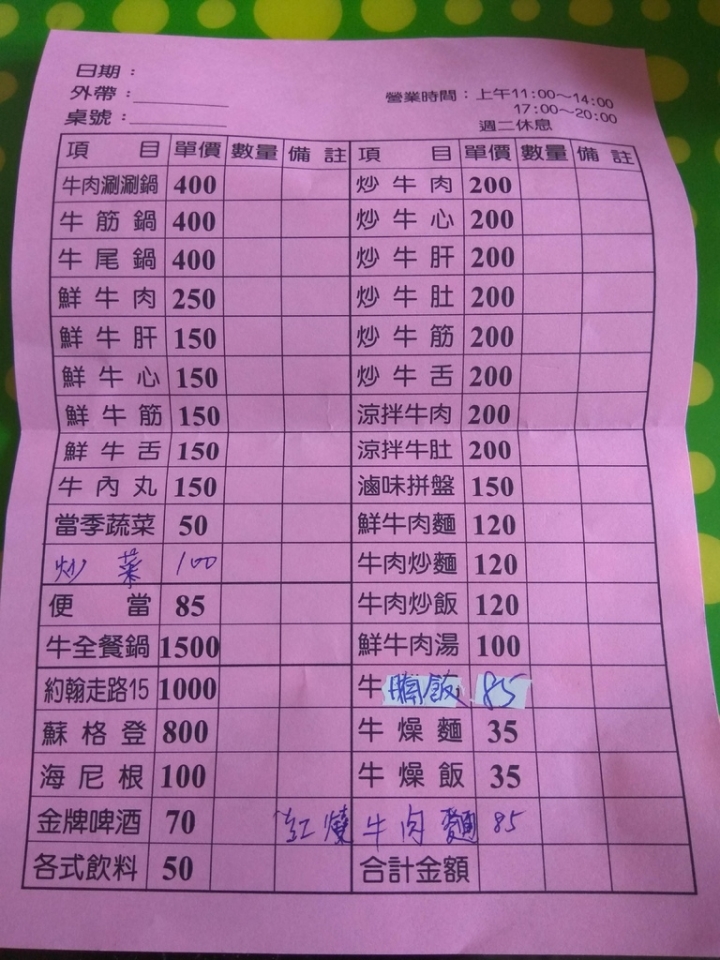 日期：
外帶：
桌號：
營業時間：上午11:00～14:00
17:00～20:00
週二休息
項目 單價 數量 備註 項目 單價 數量 備註
牛肉涮涮鍋 400 炒牛肉 200
牛筋鍋 400 炒牛心 200
牛尾鍋 400 炒牛肝 200
鮮牛肉 250 炒牛肚 200
鮮牛肝 150 炒牛筋 200
鮮牛心 150 炒牛舌 200
鮮牛筋 150 涼拌牛肉 200
鮮牛舌 150 涼拌牛肚 200
牛內丸 150 滷味拼盤 150
當季蔬菜 50 鮮牛肉麵 120
炒菜 100 牛肉炒麵 120
便當 85 牛肉炒飯 120
牛全餐鍋 1500 鮮牛肉湯 100
約翰走路15 1000 牛腩飯 85
蘇格登 800 牛燥麵 35
海尼根 100 牛燥飯 35
金牌啤酒 70 紅燒牛肉麵 85
各式飲料 50 合計金額